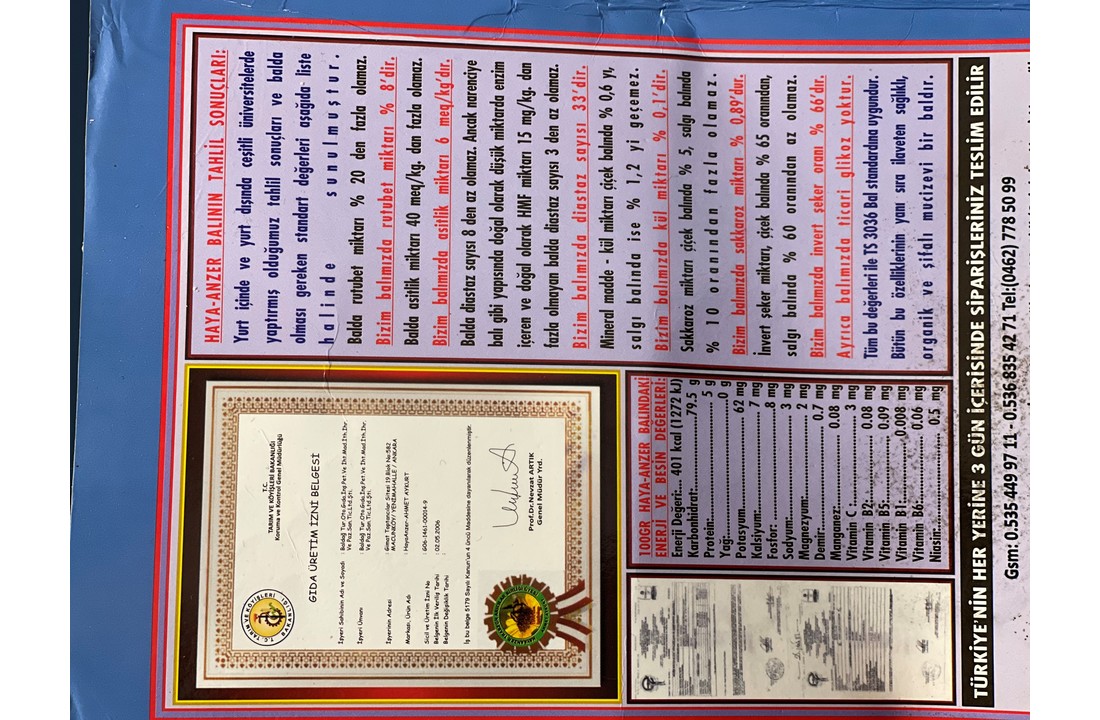 HAYA-ANZER BALININ TAHLİL SONUÇLARI:
Yurt içinde ve yurt dışında çeşitli üniversitelerde
yaptırmış olduğumuz tahlil sonuçları ve balda
olması gereken standart değerleri aşağıda liste
halinde sunulmuştur.
Balda rutubet miktarı % 20 den fazla olamaz.
Bizim balımızda rutubet miktarı % 8'dir.
Balda asitlik mikatrı 40 meq/kg. dan fazla olamaz.
Bizim balımızda asitlik miktarı 6 meq/kg'dır.
Balda diastaz sayısı 8 den az olamaz. Ancak narenciye
balı gibi yapısında doğal olarak düşük miktarda enzim
içeren ve doğal olarak HMF miktarı 15 mg/kg. dan
fazla olmayan balda diastaz sayısı 3 den az olamaz.
Bizim balımızda diastaz sayısı 33'dir.
Mineral madde - kül miktarı çiçek balında % 0,6 yı,
salgı balında ise % 1,2 yi geçemez.
Bizim balımızda kül miktarı % 0,1'dir.
Sakkaroz miktarı çiçek balında % 5, salgı balında
% 10 oranından fazla olamaz.
Bizim balımızda sakkaroz miktarı % 0,89'dur.
İnvert şeker miktarı, çiçek balında % 65 oranından,
salgı balında % 60 oranından az olamaz.
Bizim balımızda invert şeker oranı % 66'dır.
Ayrıca balımızda ticari glikoz yoktur.
Tüm bu değerleri ile TS 3036 Bal standardına uygundur.
Bütün bu özelliklerinin yanı sıra ilaveten sağlıklı,
organik ve şifalı mucizevi bir baldır.
T.C.
TARIM VE KÖYİŞLERİ BAKANLIĞI
Koruma ve Kontrol Genel Müdürlüğü
GIDA ÜRETİM İZNİ BELGESİ
İşyeri Sahibinin Adı ve Soyadı : Baldağ Tur.Oto.Gıda,İnş.Pet.Ve İht.Mad.İth.İhr.
Ve Paz.San.Tic.Ltd.Şti.
İşyeri Ünvanı : Baldağ Tur.Oto.Gıda,İnş.Pet.Ve İht.Mad.İth.İhr.
Ve Paz.San.Tic.Ltd.Şti.
İşyerinin Adresi : Gimat Toptancılar Sitesi 19.Blok No:582
MACUNKÖY/ YENİMAHALLE / ANKARA
Markası, Ürün Adı : HayaAnzer-AHMET AYKURT
Sicil ve Üretim İzni No : G06-1461-00014-9
Belgenin İlk Veriliş Tarihi : 02.05.2006
Belgenin Değişiklik Tarihi
İş bu belge 5179 Sayılı Kanun'un 4 üncü Maddesine dayanılarak düzenlenmiştir.
Prof.Dr.Nevzat ARTIK
Genel Müdür Yrd.
100GR HAYA-ANZER BALINDAKİ
ENERJİ VE BESİN DEĞERLERİ:
Enerji Değeri:... 401 kcal (1272 kJ)
Karbonhidrat:...........79.5 g
Protein:........................ 5 g
Yağ:.............................0 g
Potasyum:.................. 62 mg
Kalsiyum:.................... 7 mg
Fosfor:........................8 mg
Sodyum:...................... 3 mg
Magnezyum:................. 2 mg
Demir:........................0.7 mg
Manganez:................ 0.08 mg
Vitamin C :................... 3 mg
Vitamin B2:............... 0.08 mg
Vitamin B5:............... 0.09 mg
Vitamin B1:..............0.008 mg
Vitamin B6:............... 0.06 mg
Niasin:....................... 0.5 mg
TÜRKİYE'NİN HER YERİNE 3 GÜN İÇERİSİNDE SİPARİŞLERİNİZ TESLİM EDİLİR
Gsm: 0.535 449 97 11 - 0.536 835 42 71 Tel:(0462) 778 50 99